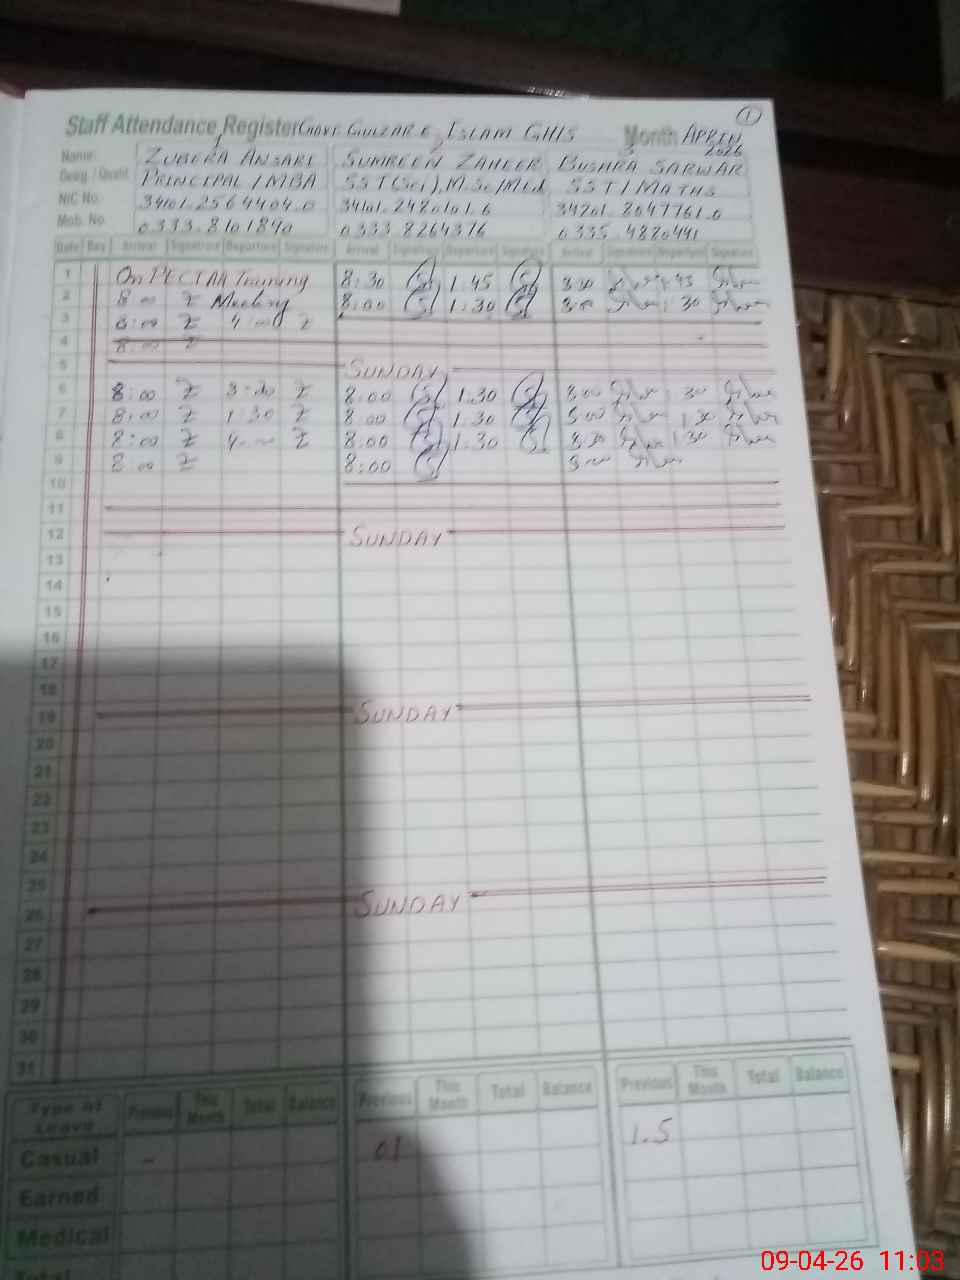 1
Staff Attendance Register Govt. Gulzar e Islam GHS Month April 2026
1 2 3
Name: Zubera Ansari Sumreen Zaheer Bushra Sarwar
Desig. / Qualif. Principal / MBA SST (Sci), M.Sc/Med SST / Maths
NIC No. 34101.2564404.0 34101.2480101.6 34201.8047761.0
Mob. No. 0333.8101890 0333.8264376 0335.4880441
Date Day Arrival Signature Departure Signature Arrival Signature Departure Signature Arrival Signature Departure Signature
1 On PECTAA Training 8:30 1.45
2 8:00 Z Meeting 8:00 1.30 30
3 8:00 Z 4:00 Z
4 8:00 Z
5 SUNDAY
6 8:00 Z 3-20 Z 8:00 1.30 8:00 30
7 8:00 Z 1:30 Z 8:00 1.30 8:00 1.30
8 8:00 Z 4:00 Z 8:00 1.30 1.30
9 8:00 Z 8:00 8:00
10
11
12 SUNDAY
13
14
15
16
17
18
19 SUNDAY
20
21
22
23
24
25
26 SUNDAY
27
28
29
30
31
Type of Leave Previous This Month Total Balance Previous This Month Total Balance Previous This Month Total Balance
Casual - 01 1.5
Earned
Medical
Total
09-04-26 11:03